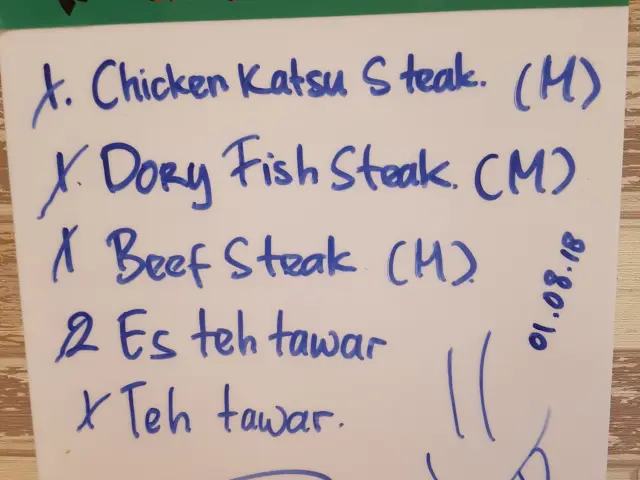 1. Chicken Katsu Steak. (M)
1. Dory Fish Steak. (M)
1 Beef Steak (M).
2 Es teh tawar
1 Teh tawar.
01.08.18
11